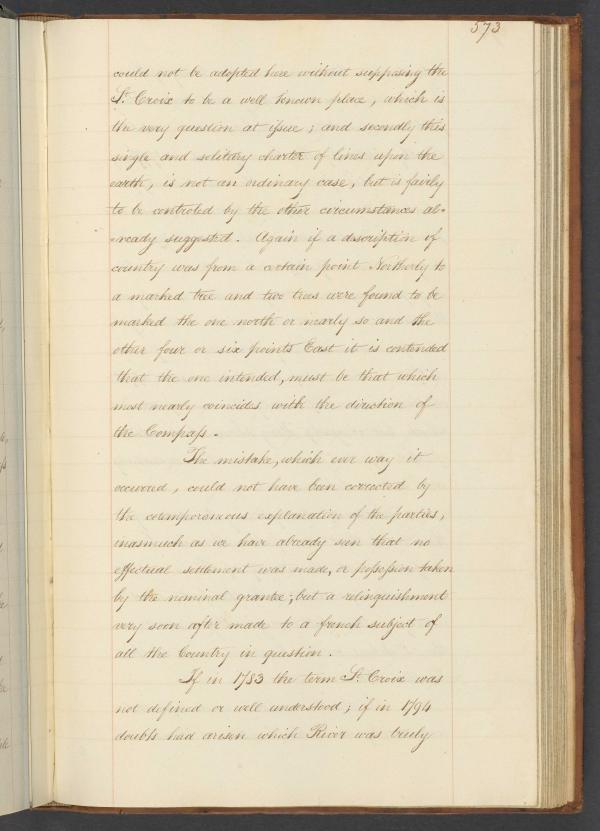 573
could not be adopted here without supposing the
St. Croix to be a well known place, which is
the very question at issue; and secondly this
single and solitary charter of lines upon the
earth, is not an ordinary case, but is fairly
to be controled by the other circumstances al=
=ready suggested. Again if a description of
country was from a certain point Northerly to
a marked tree and two trees were found to be
marked the one north or nearly so and the
other four or six points East it is contended
that the one intended, must be that which
most nearly coincides with the direction of
the Compass.
The mistake, which ever way it
occurred, could not have been corrected by
the cotemporaneous explanation of the parties,
inasmuch as we have already seen that no
effectual settlement was made, or possession taken
by the nominal grantee; but a relinquishment
very soon after made to a french subject of
all the Country in question.
If in 1783 the term St. Croix was
not defined or well understood; if in 1794
doubts had arisen which River was truly